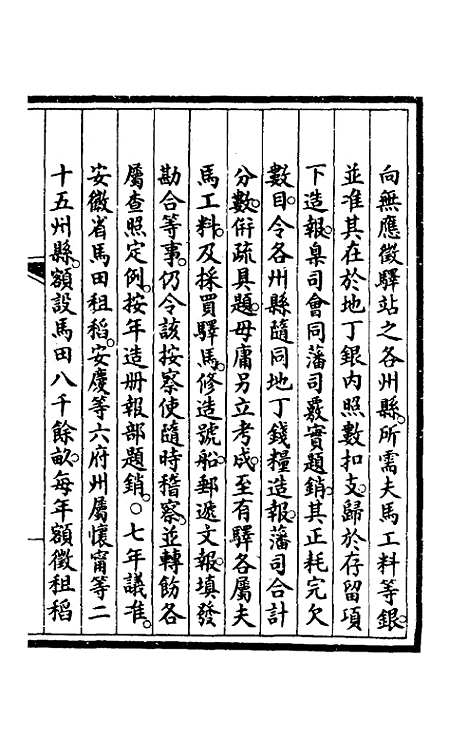 向無應徵驛站之各州縣。所需夫馬工料等銀。
並准其在於地丁銀內照數扣支。歸於存留項
下造報。臬司會同藩司覈實題銷。其正耗完欠
數目。令各州縣隨同地丁錢糧造報。藩司合計
分數。併疏具題。毋庸另立考成。至有驛各屬夫
馬工料。及採買驛馬。修造號船。郵遞文報。填發
勘合等事。仍令該按察使隨時稽察。並轉飭各
屬查照定例。按年造冊報部題銷。○七年議准。
安徽省馬田租稻。安慶等六府州屬懷甯等二
十五州縣。額設馬田八千餘畝。每年額徵租稻